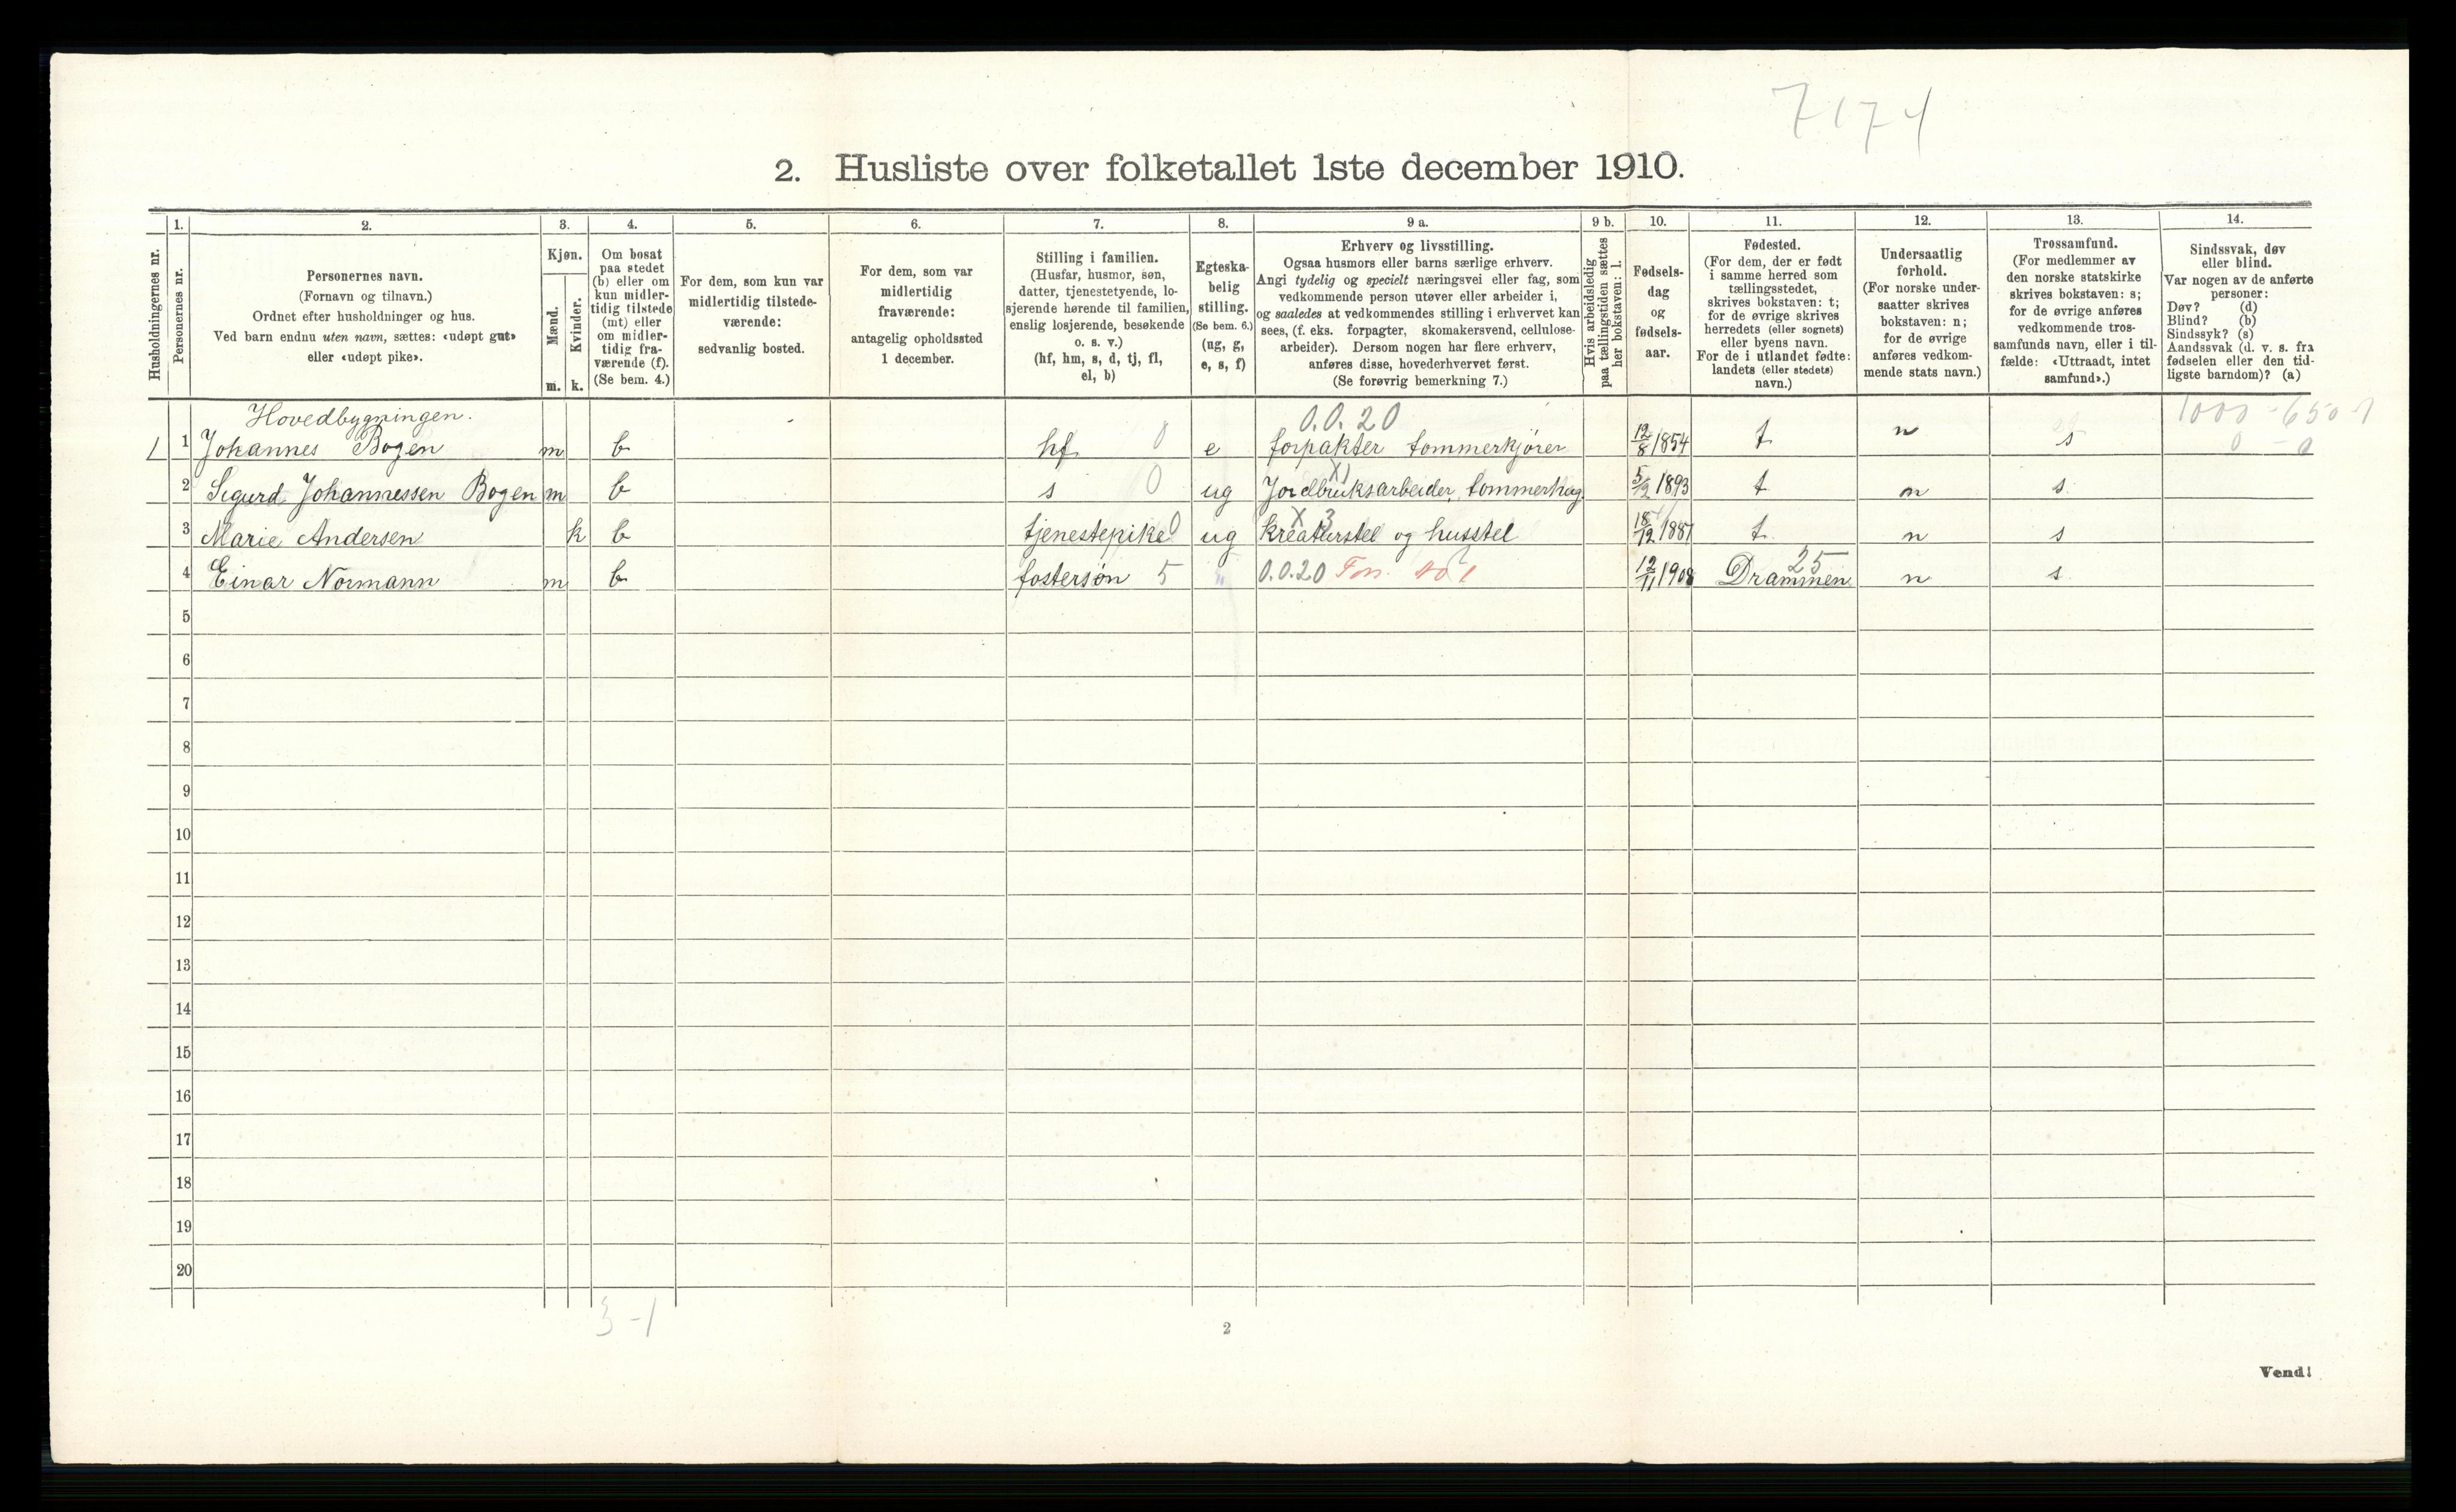 7174
2. Husliste over folketallet 1ste december 1910.
Husholdningernes nr.
1.
Personernes nr.
2.
Personernes navn.
(Fornavn og tilnavn.)
Ordnet efter husholdninger og hus.
Ved barn endnu uten navn, sættes: «udøpt gut»
eller «udøpt pike».
3.
Kjøn.
Mænd.
m.
Kvinder.
k.
4.
Om bosat
paa stedet
(b) eller om
kun midler-
tidig tilstede
(mt) eller
om midler-
tidig fra-
værende (f).
(Se bem. 4.)
5.
For dem, som kun var
midlertidig tilstede-
værende:
sedvanlig bosted.
6.
For dem, som var
midlertidig
fraværende:
antagelig opholdssted
1 december.
7.
Stilling i familien.
(Husfar, husmor, søn,
datter, tjenestetyende, lo-
sjerende hørende til familien,
enslig losjerende, besøkende
o. s. v.)
(hf, hm, s, d, tj, fl,
el, b)
8.
Egteska-
belig
stilling.
(Se bem. 6.)
(ug, g,
e, s, f)
9 a.
Erhverv og livsstilling.
Ogsaa husmors eller barns særlige erhverv.
Angi tydelig og specielt næringsvei eller fag, som
vedkommende person utøver eller arbeider i,
og saaledes at vedkommendes stilling i erhvervet kan
sees, (f. eks. forpagter, skomakersvend, cellulose-
arbeider). Dersom nogen har flere erhverv,
anføres disse, hovederhvervet først.
(Se forøvrig bemerkning 7.)
9 b.
Hvis arbeidsledig
paa tællingstiden sættes
her bokstaven: l.
10.
Fødsels-
dag
og
fødsels-
aar.
11.
Fødested.
(For dem, der er født
i samme herred som
tællingsstedet,
skrives bokstaven: t;
for de øvrige skrives
herredets (eller sognets)
eller byens navn.
For de i utlandet fødte:
landets (eller stedets)
navn.)
12.
Undersaatlig
forhold.
(For norske under-
saatter skrives
bokstaven: n;
for de øvrige
anføres vedkom-
mende stats navn.)
13.
Trossamfund.
(For medlemmer av
den norske statskirke
skrives bokstaven: s;
for de øvrige anføres
vedkommende tros-
samfunds navn, eller i til-
fælde: «Uttraadt, intet
samfund».)
14.
Sindssvak, døv
eller blind.
Var nogen av de anførte
personer:
Døv? (d)
Blind? (b)
Sindssyk? (s)
Aandssvak (d. v. s. fra
fødselen eller den tid-
ligste barndom)? (a)
Hovedbygningen. 0.0.20 1000-650-1
1 1 Johannes Bogen m b hf 0 e forpakter tømmerkjører 12/8 1854 t n s 0 - 0
X1
2 Sigurd Johannessen Bogen m b s 0 ug Jordbruksarbeider, tømmerhug. 5/12 1893 t n s
X 3
3 Marie Andersen k b tjenestepike 0 ug kreaturstel og husstel 18/12 1887 t n s
25
4 Einar Normann m b fostersøn 5 0.0.20 1 12/11 1908 Drammen n s
5
6
7
8
9
10
11
12
13
14
15
16
17
18
19
20
3-1
2
Vend!